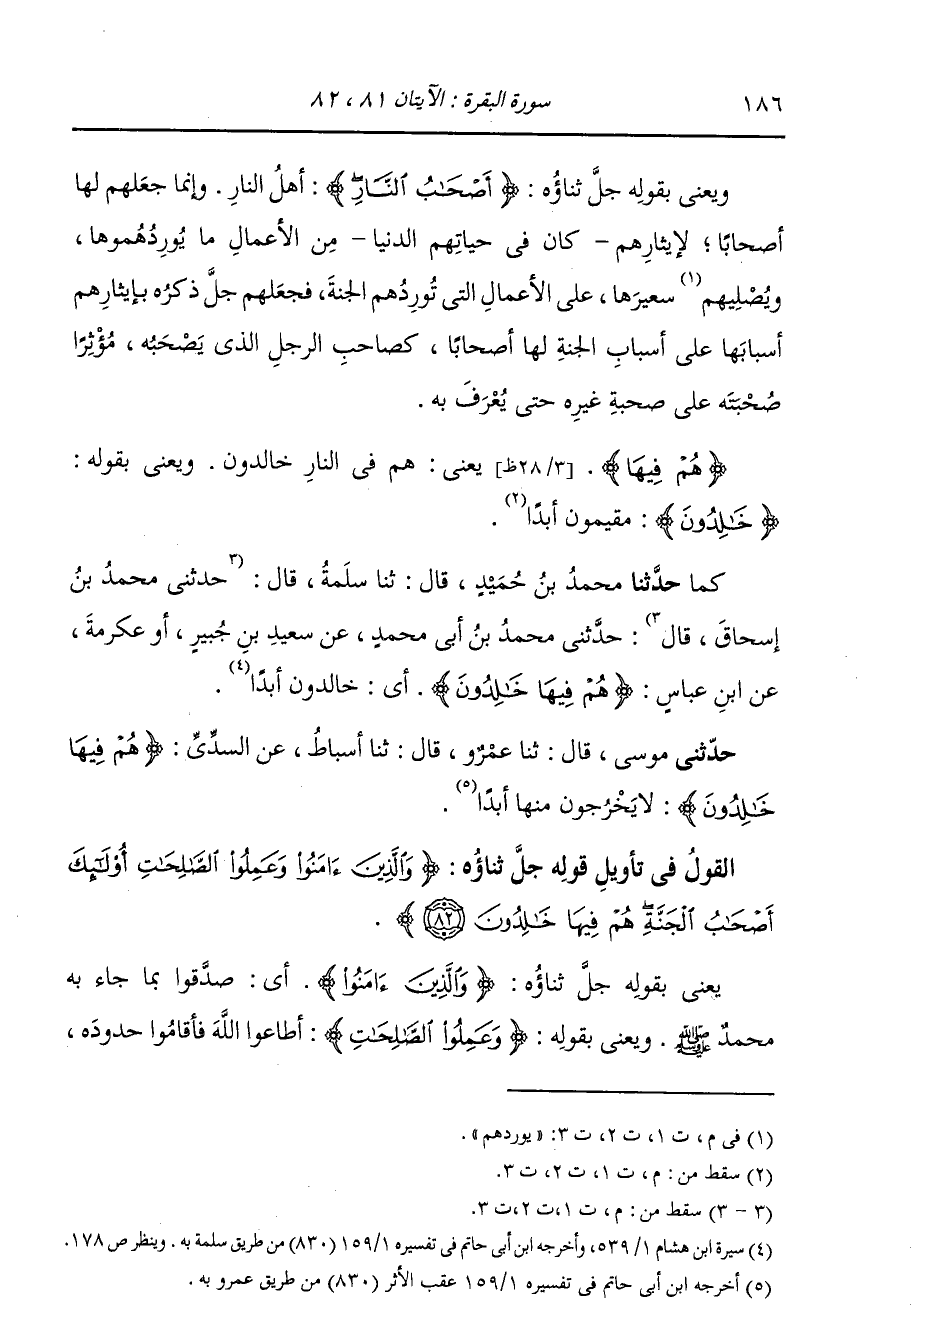 ١٨٦ سورة البقرة : الآيتان ٨١ ، ٨٢
ويعنى بقولِه جلَّ ثناؤُه : ﴿ أَصْحَٰبُ ٱلنَّارِۖ ﴾ : أهلُ النارِ . وإنما جعَلهم لها
أصحابًا ؛ لإيثارِهم - كان فى حياتِهم الدنيا - مِن الأعمالِ ما يُورِدُهُموها ،
ويُصْلِيهم(١) سعيرَها ، على الأعمالِ التى تُورِدُهم الجنةَ، فجعَلهم جلَّ ذكرُه بإيثارِهم
أسبابَها على أسبابِ الجنةِ لها أصحابًا ، كصاحبِ الرجلِ الذى يَصْحَبُه ، مُؤْثِرًا
صُحْبَتَه على صحبةِ غيرِه حتى يُعْرَفَ به .
﴿ هُمْ فِيهَا ﴾ . [٢٨/٣ظ] يعنى : هم فى النارِ خالدون . ويعنى بقولِه :
﴿ خَٰلِدُونَ ﴾ : مقيمون أبدًا(٢) .
كما حدَّثنا محمدُ بنُ حُمَيْدٍ ، قال : ثنا سلَمةُ ، قال : (٣حدثنى محمدُ بنُ
إسحاقَ ، قال٣) : حدَّثنى محمدُ بنُ أبى محمدٍ ، عن سعيدِ بنِ جُبيرٍ ، أو عكرمةَ ،
عن ابنِ عباسٍ : ﴿ هُمْ فِيهَا خَٰلِدُونَ ﴾ . أى : خالدون أبدًا(٤) .
حدّثنى موسى ، قال : ثنا عمْرٌو ، قال : ثنا أسباطُ ، عن السدِّىِّ : ﴿ هُمْ فِيهَا
خَٰلِدُونَ ﴾ : لا يَخْرُجون منها أبدًا(٥) .
القولُ فى تأويلِ قولِه جلَّ ثناؤُه : ﴿ وَٱلَّذِينَ ءَامَنُواْ وَعَمِلُواْ ٱلصَّٰلِحَٰتِ أُوْلَٰٓئِكَ
أَصْحَٰبُ ٱلْجَنَّةِۖ هُمْ فِيهَا خَٰلِدُونَ ٨٢ ﴾ .
يعنى بقولِه جلَّ ثناؤُه : ﴿ وَٱلَّذِينَ ءَامَنُواْ ﴾ . أى : صدَّقوا بما جاء به
محمدٌ ﷺ . ويعنى بقولِه : ﴿ وَعَمِلُواْ ٱلصَّٰلِحَٰتِ ﴾ : أطاعوا اللَّهَ فأقامُوا حدودَه ،
(١) فى م، ت ١، ت ٢، ت ٣: « يوردهم » .
(٢) سقط من : م ، ت ١، ت ٢، ت ٣.
(٣ - ٣) سقط من : م ، ت ١، ت ٢، ت ٣.
(٤) سيرة ابن هشام ١/ ٥٣٩، وأخرجه ابن أبى حاتم فى تفسيره ١٥٩/١ (٨٣٠) من طريق سلمة به . وينظر ص ١٧٨.
(٥) أخرجه ابن أبى حاتم فى تفسيره ١٥٩/١ عقب الأثر (٨٣٠) من طريق عمرو به .